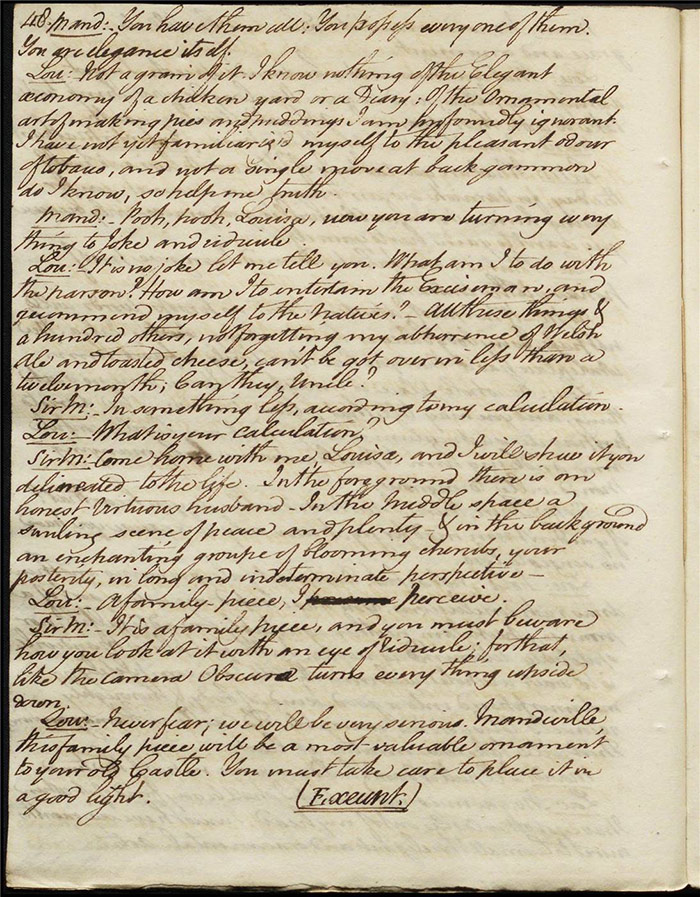 48. Mand:- You have them all: You possess every one of them.
You are elegance itself.
Lou:- Not a grain of it. I know nothing of the Elegant
œconomy of a chicken yard or a Diary: Of the Ornamental
art of making pies and puddings I am profoundly ignorant.
I have not yet familiariz'd myself to the pleasant odour
of tobacco, and not a single move at backgammon
do I know, so help me truth.
Mand:- Pooh, pooh, Louisa, now you are turning every
thing to Joke and ridicule.
Lou:- It is no joke let me tell you. What am I to do with
the parson? How am I to entertain the Exciseman, and
recommend myself to the Natives? - All these things &
a hundred others, not forgetting my abhorrence of Welsh
Ale and toasted cheese, can't be got over in less than a
twelvemonth; Can they, Uncle?
Sir M:- In something less, according to my calculation.
Lou:- What is your calculation?
Sir M:- Come home with me Louisa, and I will shew it you
delineated to the life. In the foreground there is an
honest virtuous husband - In the middle space a
smiling scene of peace and plenty - & in the background
an enchanting groupe of blooming cherubs, your
posterity, in long and indeterminate perspective -
Lou:- A family piece, I perceive.
Sir M:- It is a family piece, and you must beware
how you look at it with an eye of ridicule; for that,
like the Camera Obscura turns every thing upside
down.
Lou:- Never fear; we will be very serious. Mandeville,
this family piece will be a most valuable ornament
to your old Castle. You must take care to place it in
a good light. (Exeunt.)